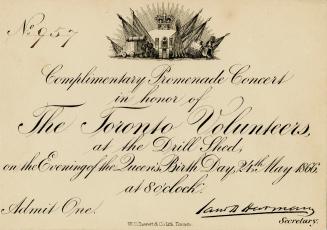 No. 957
Complimentary Promenade Concert
in honor of
The Toronto Volunteers,
at the Drill Shed,
on the Evening of the Queen's Birth Day, 24th May 1866,
at 8 o'clock.
Admit One.
Secretary.